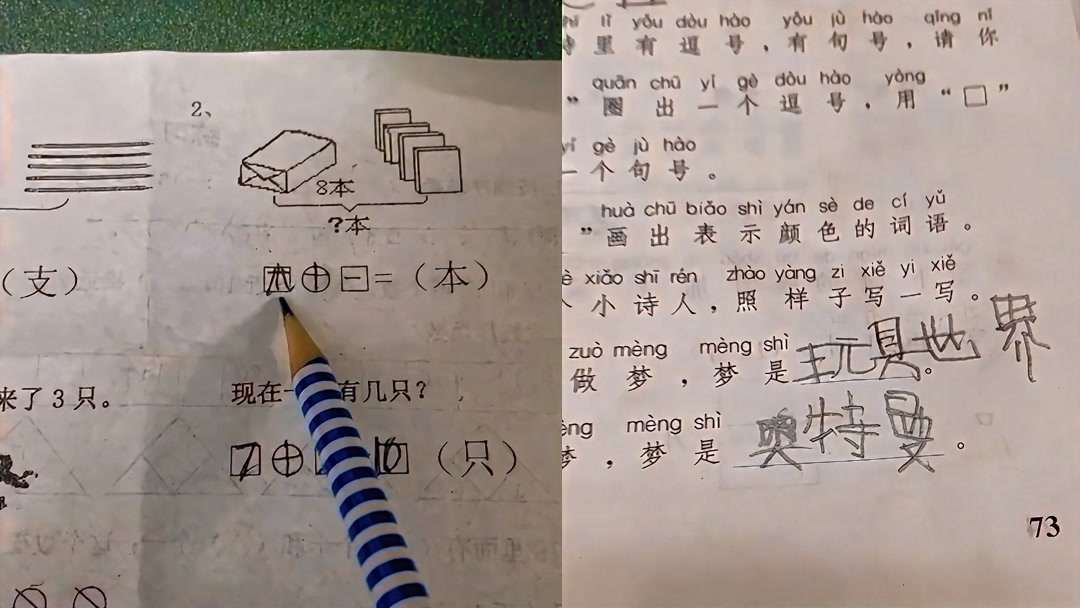 2、
8本
?本
（支）
木＋－=（本）
来了3只。
现在一 有几只？
7＋ 10（只）
里有逗号，有句号，请你
lǐ yǒu dòu hào yǒu jù hào qǐng nǐ
quān chū yí gè dòu hào yòng
”圈出一个逗号，用“□”
yí gè jù hào
一个句号。
huà chū biǎo shì yán sè de cí yǔ
”画出表示颜色的词语。
xiǎo shī rén zhào yàng zi xiě yi xiě
个小诗人，照样子写一写。
zuò mèng mèng shì
做梦，梦是玩具世界。
mèng mèng shì
梦，梦是奥特曼。
73